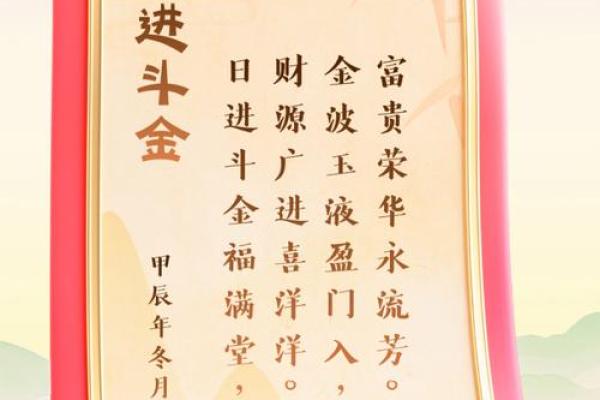 进斗金
日进斗金福满堂，
财源广进喜洋洋。
金波玉液盈门入，
富贵荣华永流芳。
甲辰年冬月